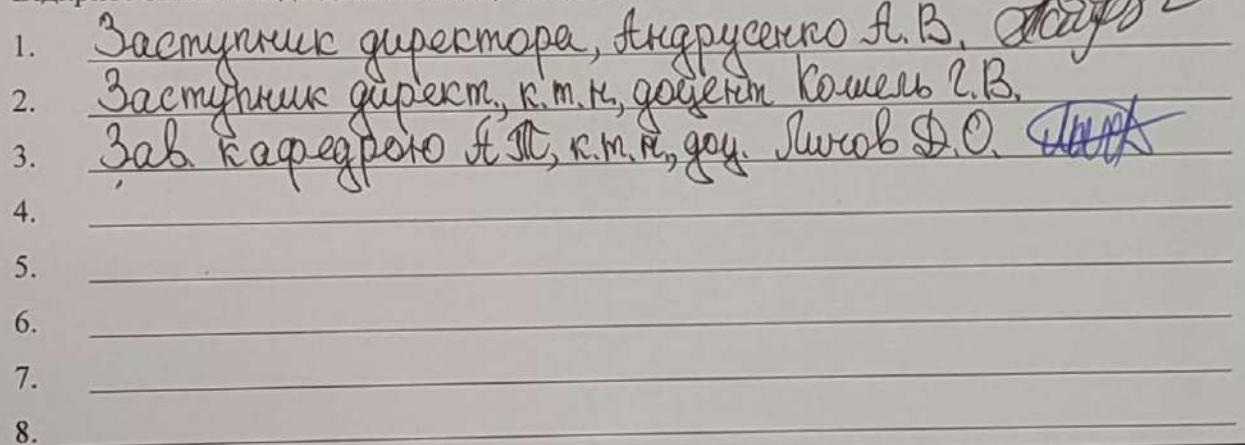 1. Заступник директора, Андрусенко А.В.
2. Заступник директ., к.т.н., доцент Кошель Г.В.
3. Зав. кафедрою АТ, к.т.н., доц. Личов Д.О.
4.
5.
6.
7.
8.